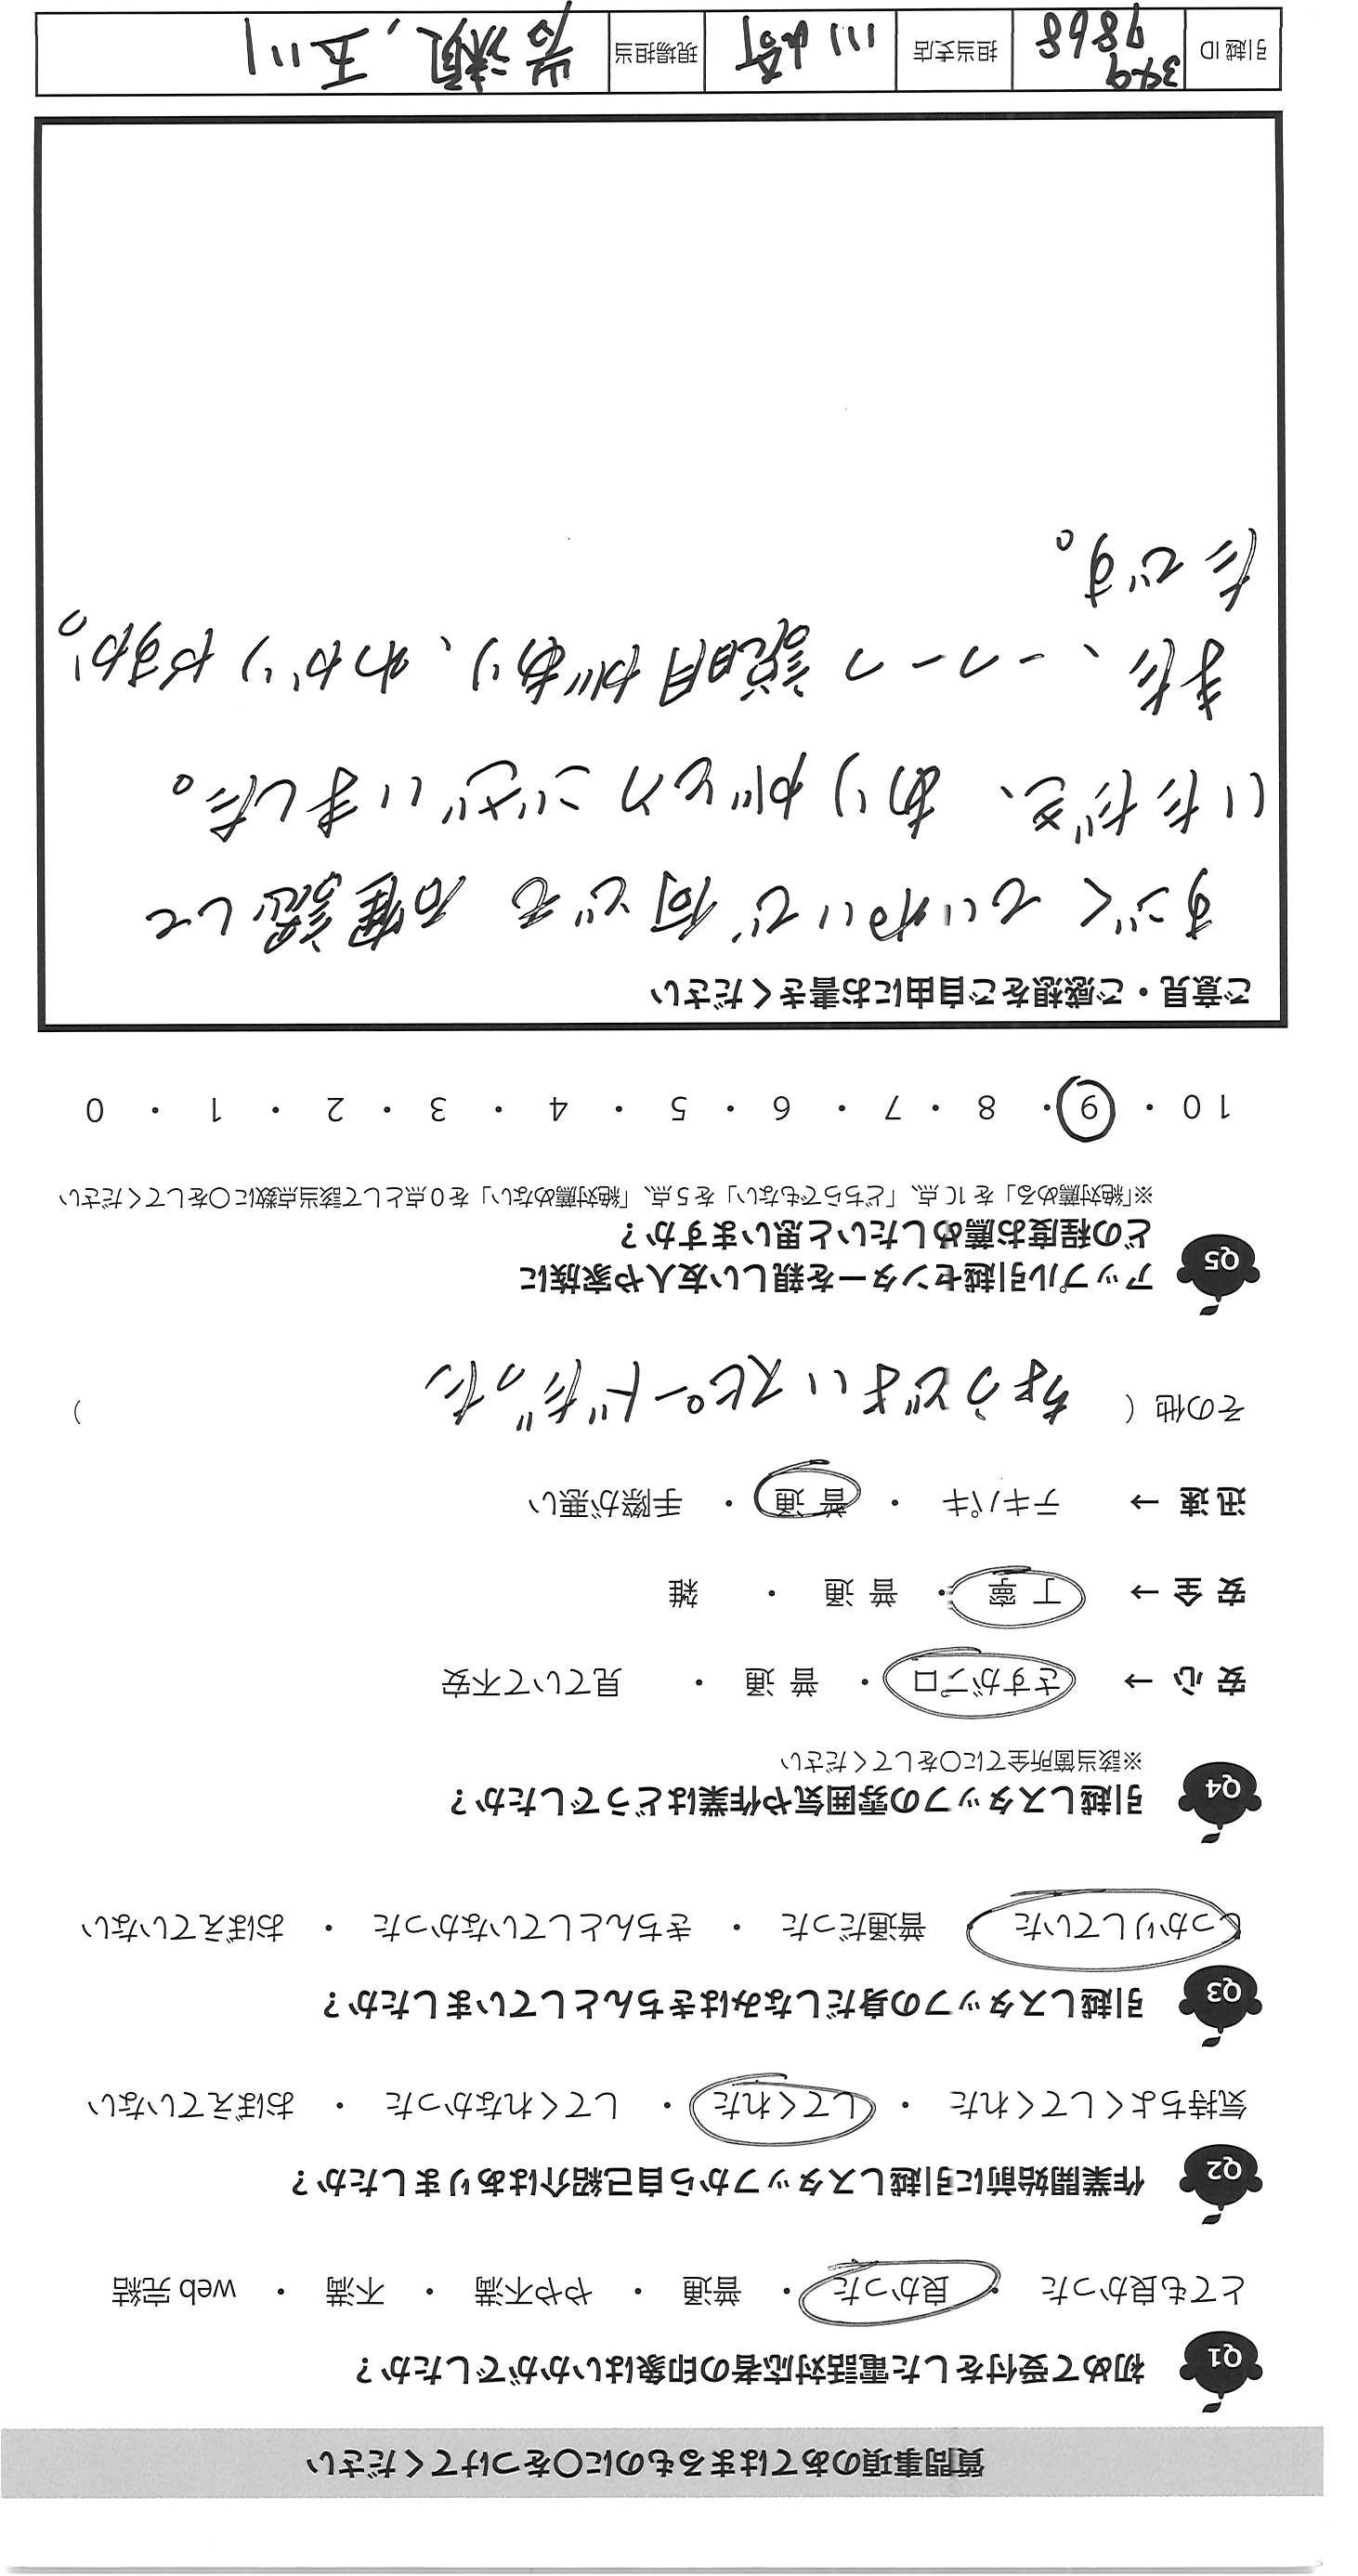 質問事項のあてはまるものに〇をつけてください
Q1 初めて受付をした電話対応者の印象はいかがでしたか？
とても良かった ・ 良かった ・ 普通 ・ やや不満 ・ 不満 ・ web 完結
Q2 作業開始前に引越しスタッフから自己紹介はありましたか？
気持ちよくしてくれた ・ してくれた ・ してくれなかった ・ おぼえていない
Q3 引越しスタッフの身だしなみはきちんとしていましたか？
しっかりしていた 普通だった ・ きちんとしていなかった ・ おぼえていない
Q4 引越しスタッフの雰囲気や作業はどうでしたか？
※該当箇所全てに〇をしてください
安 心 → さすがプロ ・ 普 通 ・ 見ていて不安
安 全 → 丁 寧 ・ 普 通 ・ 雑
迅 速 → テキパキ ・ 普 通 ・ 手際が悪い
その他（ ちょうどよいスピードだった ）
Q5 アップル引越センターを親しい友人や家族に
どの程度お薦めしたいと思いますか？
※「絶対薦める」を 10 点、「どちらでもない」を 5 点、「絶対薦めない」を 0 点として該当点数に〇をしてください
10 ・ 9 ・ 8 ・ 7 ・ 6 ・ 5 ・ 4 ・ 3 ・ 2 ・ 1 ・ 0
ご意見・ご感想をご自由にお書きください
すごくていねいで何でも確認して
いただき、ありがとうございました。
また、一つ一つ説明があり、わかりやすか。
たです。
引越 ID 349 9868 担当支店 川崎 現場担当 岩瀬, 玉川